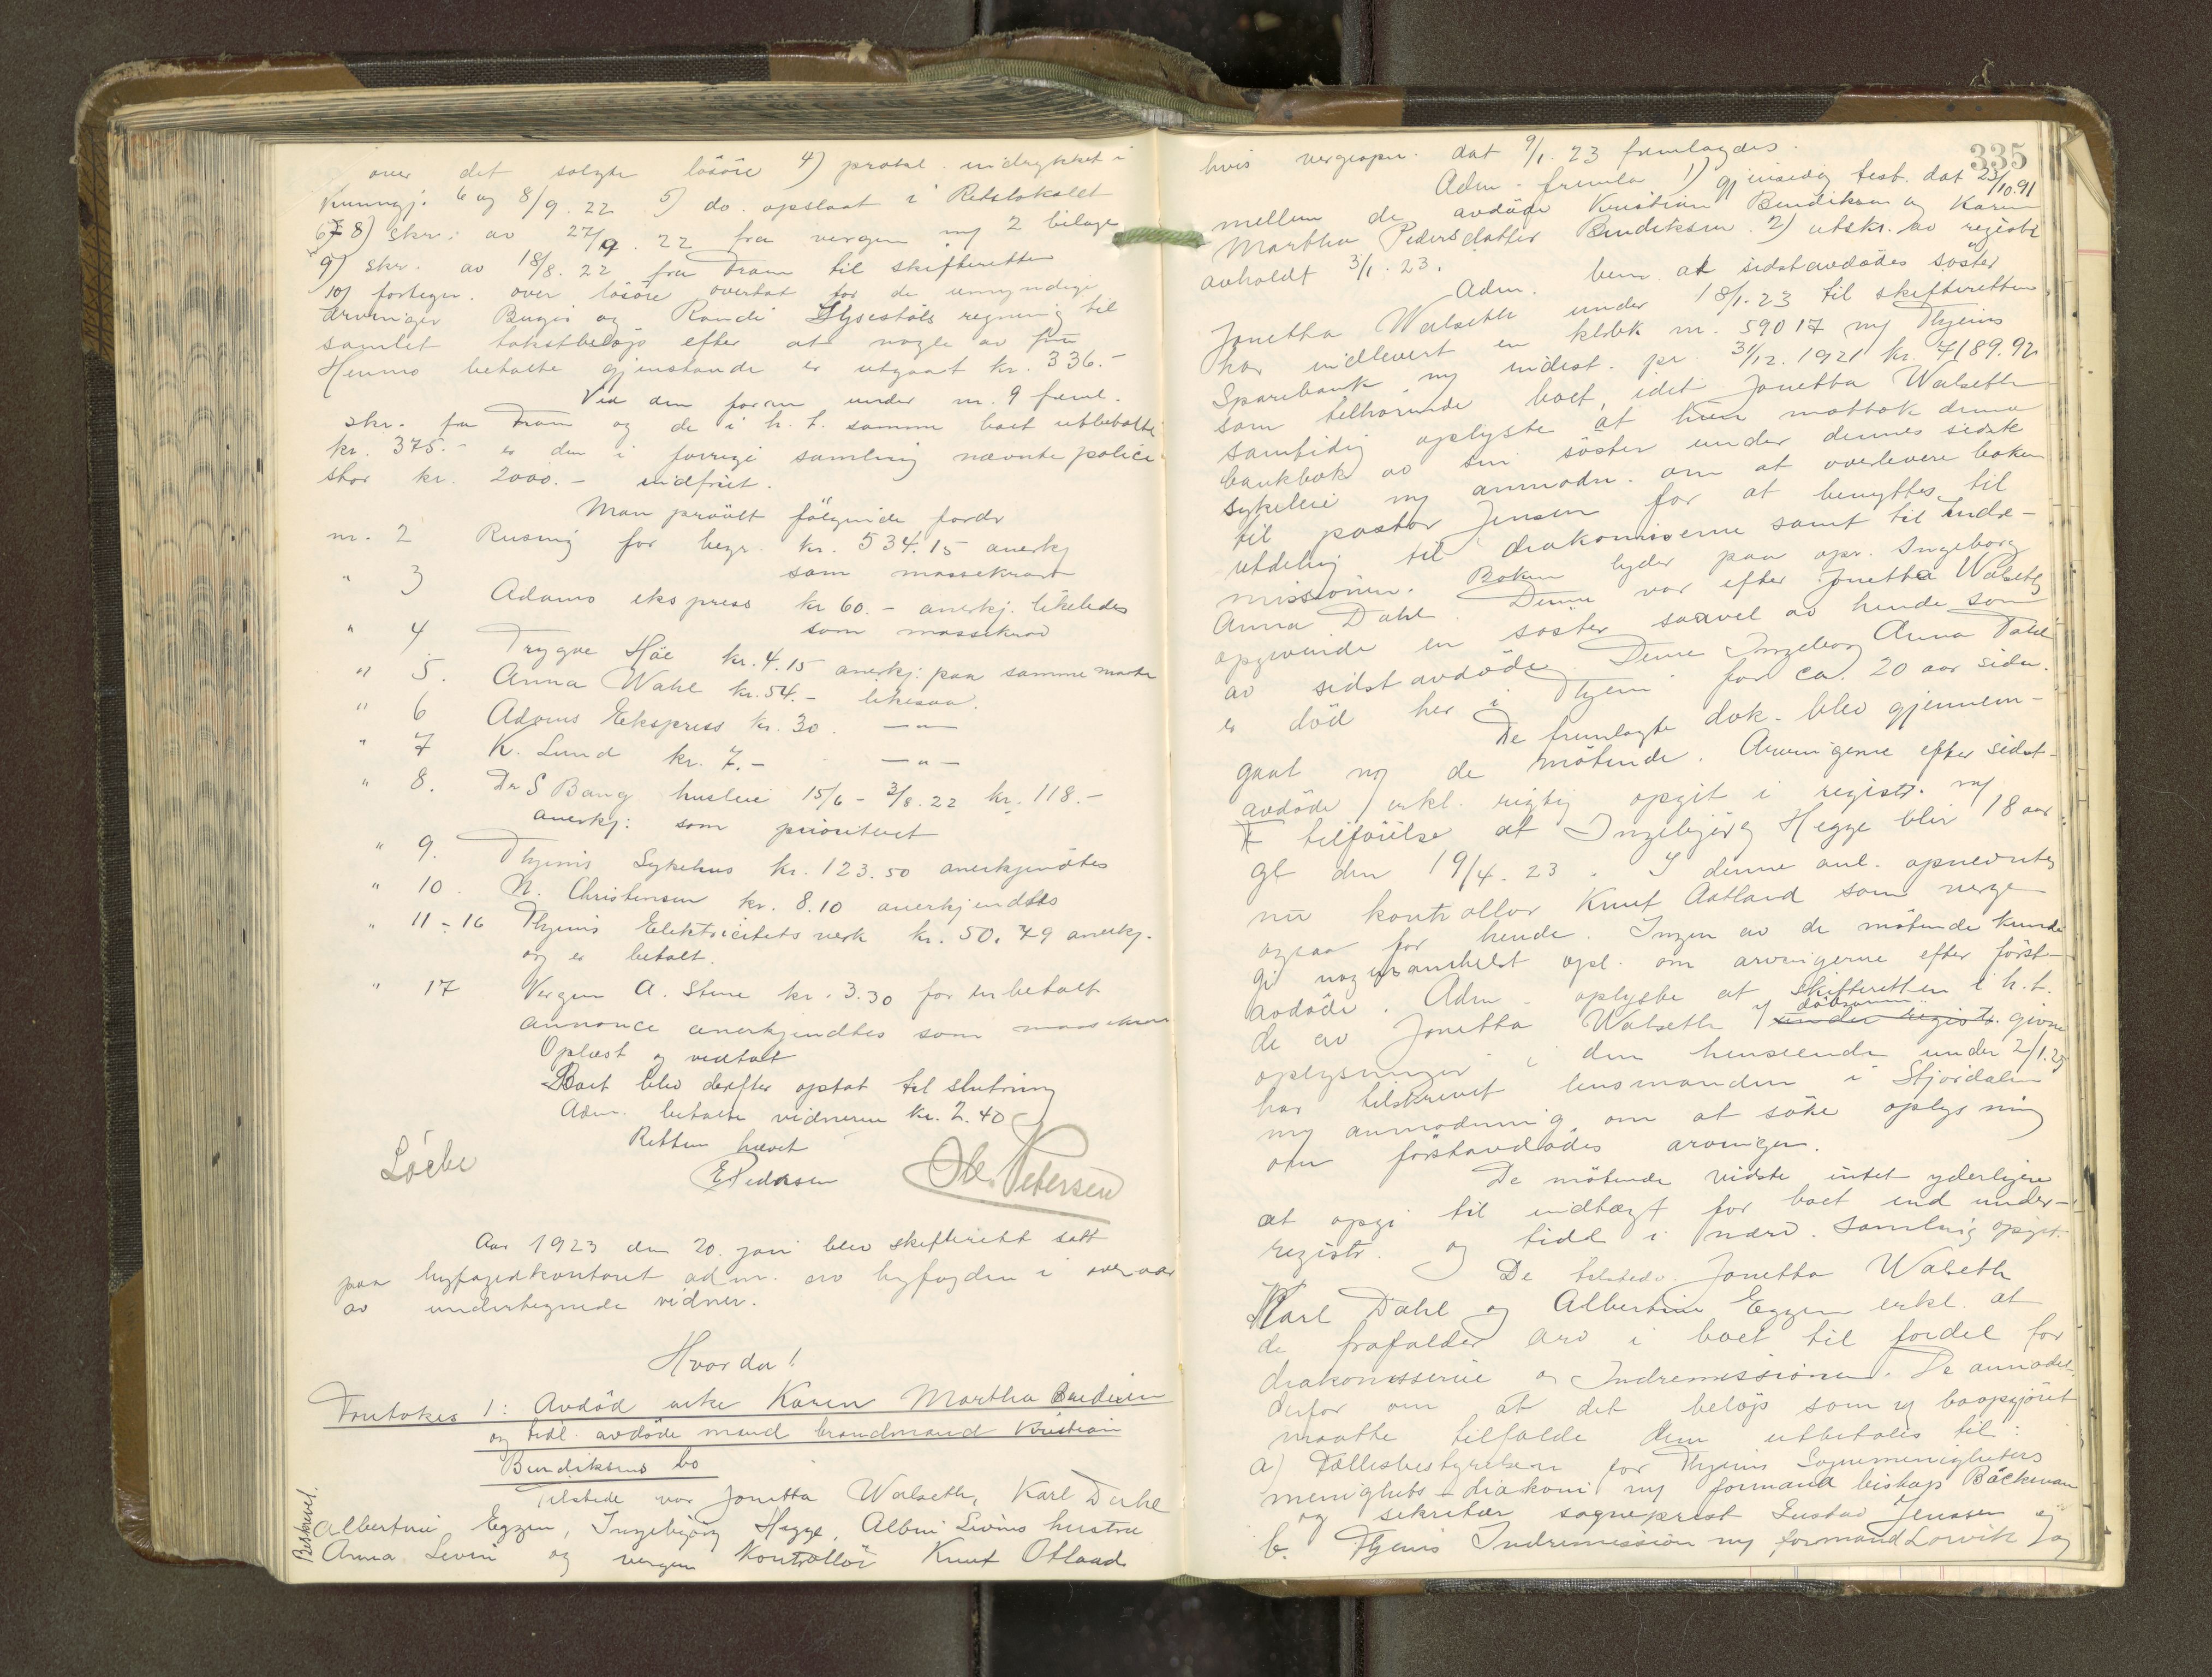 over det solgte lösöre 4) prokl. indrykket i
kunngj. 6 og 8/9.22 5) do. opslaat i Retslokalet
6, 7, 8) skr. av 27/9.22 fra vergen m/ 2 bilage
9) skr. av 18/8.22 fra Fram til skifteretten
10) fortegn. over lösöre overtat for de umyndige
arvinger Birger og Randi regning til
samlet takstbelöp efter at nogle av fru
Henmo betalte gjenstande er utgaat kr. 336.-
Ved den foran under nr. 9 freml.
skr. fra Fram og de i h.t. samme boet utbetalte
kr. 375.- er den i forrige samling nævnte police
stor kr. 2000.- indfriet.
Man prövet fölgende fordr
nr. 2 Rusing for begr. kr. 534.15 anerkj
som massekrav
" 3 Adams ekspress kr 60.- anerkj. likeledes
som massekrav
" 4 Trygve Höe kr. 4.15 anerkj: paa samme maate
" 5. Anna Wahl kr. 54.- likesaa.
" 6 Adams Ekspress kr. 30. —"—
" 7 K. Lund kr. 7.- —"—
" 8. Dr S Bang husleie 15/6 - 3/8.22 kr. 118.-
anerkj: som prioritert
" 9. Thjems Sykehus kr. 123.50 anerkjendtes
" 10. N. Christensen kr. 8.10 anerkjendtes
" 11-16 Thjems Elektricitetsverk kr. 50.79 anerkj.
og er betalt.
" 17 Vergen A. Stene kr. 3.30 for en betalt
annonce anerkjendtes som massekrav
Oplæst og vedtat
Boet blev derefter optat til slutning
Adm. betalte vidnerne kr. 2.40
Retten hævet
E Pedersen Ole Petersen
Aar 1923 den 20. jan blev skifterett satt
paa byfogedkontoret adm. av byfogden i overvær
av undertegnede vidner.
Hvorda!
Foretokes 1: Avdöd enke Karen Martha Bendiksen
og tidl. avdöde mand brandmand Kristian
Bendiksens bo
Tilstede var Jonetta Walseth, Karl Dahl
Beskrevet.
Albertine Eggen, Ingebjörg Hegge, Albin Levins hustru
Anna Levin og vergen Kontrollör Knut Otland
335
hvis vergeopn. dat 9/1.23 fremlagdes.
Adm. fremla 1) gjensidig test. dat 23/10.91
mellem de avdöde Kristian Bendiksen og Karen
Martha Pedersdatter Bendiksen. 2) utskr. av registr
avholdt 3/1.23.
Adm. bem. at sidstavdödes söster
Jonetta Walseth under 18/1.23 til skifteretten
har indlevert en kbok nr. 59017 m/ Thjems
Sparebank m/ indest. pr. 31/12.1921 kr. 4189.92
som tilhörende boet, idet Jonetta Walseth
samtidig oplyste at hun mottok denne
bankbok av sin söster under dennes sidste
sykeleie m/ anmodn. om at overlevere boken
til pastor Jensen for at benyttes til
utdeling til diakonisserne samt til Indre-
missionen. Boken lyder paa opr. Ingeborg
Anna Dahl. Denne var efter Jonetta Walseths
opgivende en söster saavel av hende som
av sidstavdöde. Denne Ingeborg Anna Dahl
er död her i Thjem for ca. 20 aar siden.
De fremlagte dok. blev gjennem-
gaat m/ de mötende. Arvingerne efter sidst-
avdöde erkl. rigtig opgit i registr. m/
tilföielse at Ingebjörg Hegge blir 18 aar
gl den 19/4.23. I denne anl. opnevntes
nu kontrollör Knut Aatland som verge
ogsaa for hende. Ingen av de mötende kunde
gi nogensomhelst opl. om arvingerne efter först-
avdöde. Adm. oplyste at skifteretten i h.t.
de av Jonetta Walseth i dödsanm. under registr. givne
oplysninger i den henseende under 2/1.23
har tilskrevet lensmanden i Stjördalen
m/ anmodning om at söke oplysning
om förstavdödes arvinger.
De mötende vidste intet yderligere
at opgi til indtægt for boet end under
registr. og tidl i nærv. samling opgit.
De tilstedev. Jonetta Walseth
Karl Dahl og Albertine Eggen erkl at
de frafalder arv i boet til fordel for
diakonisserne og Indremissionen. De anmodet
derfor om at det belöp som v/ boopgjöret
maatte tilfalde dem utbetales til:
a) Fællesbestyrelsen for Thjems Sognemenigheters
menighets-diakoni m/ formand biskop Böckman
og sekretær sogneprest Gustav Jenssen og
b. Thjems Indremission m/ formand Lorvik og